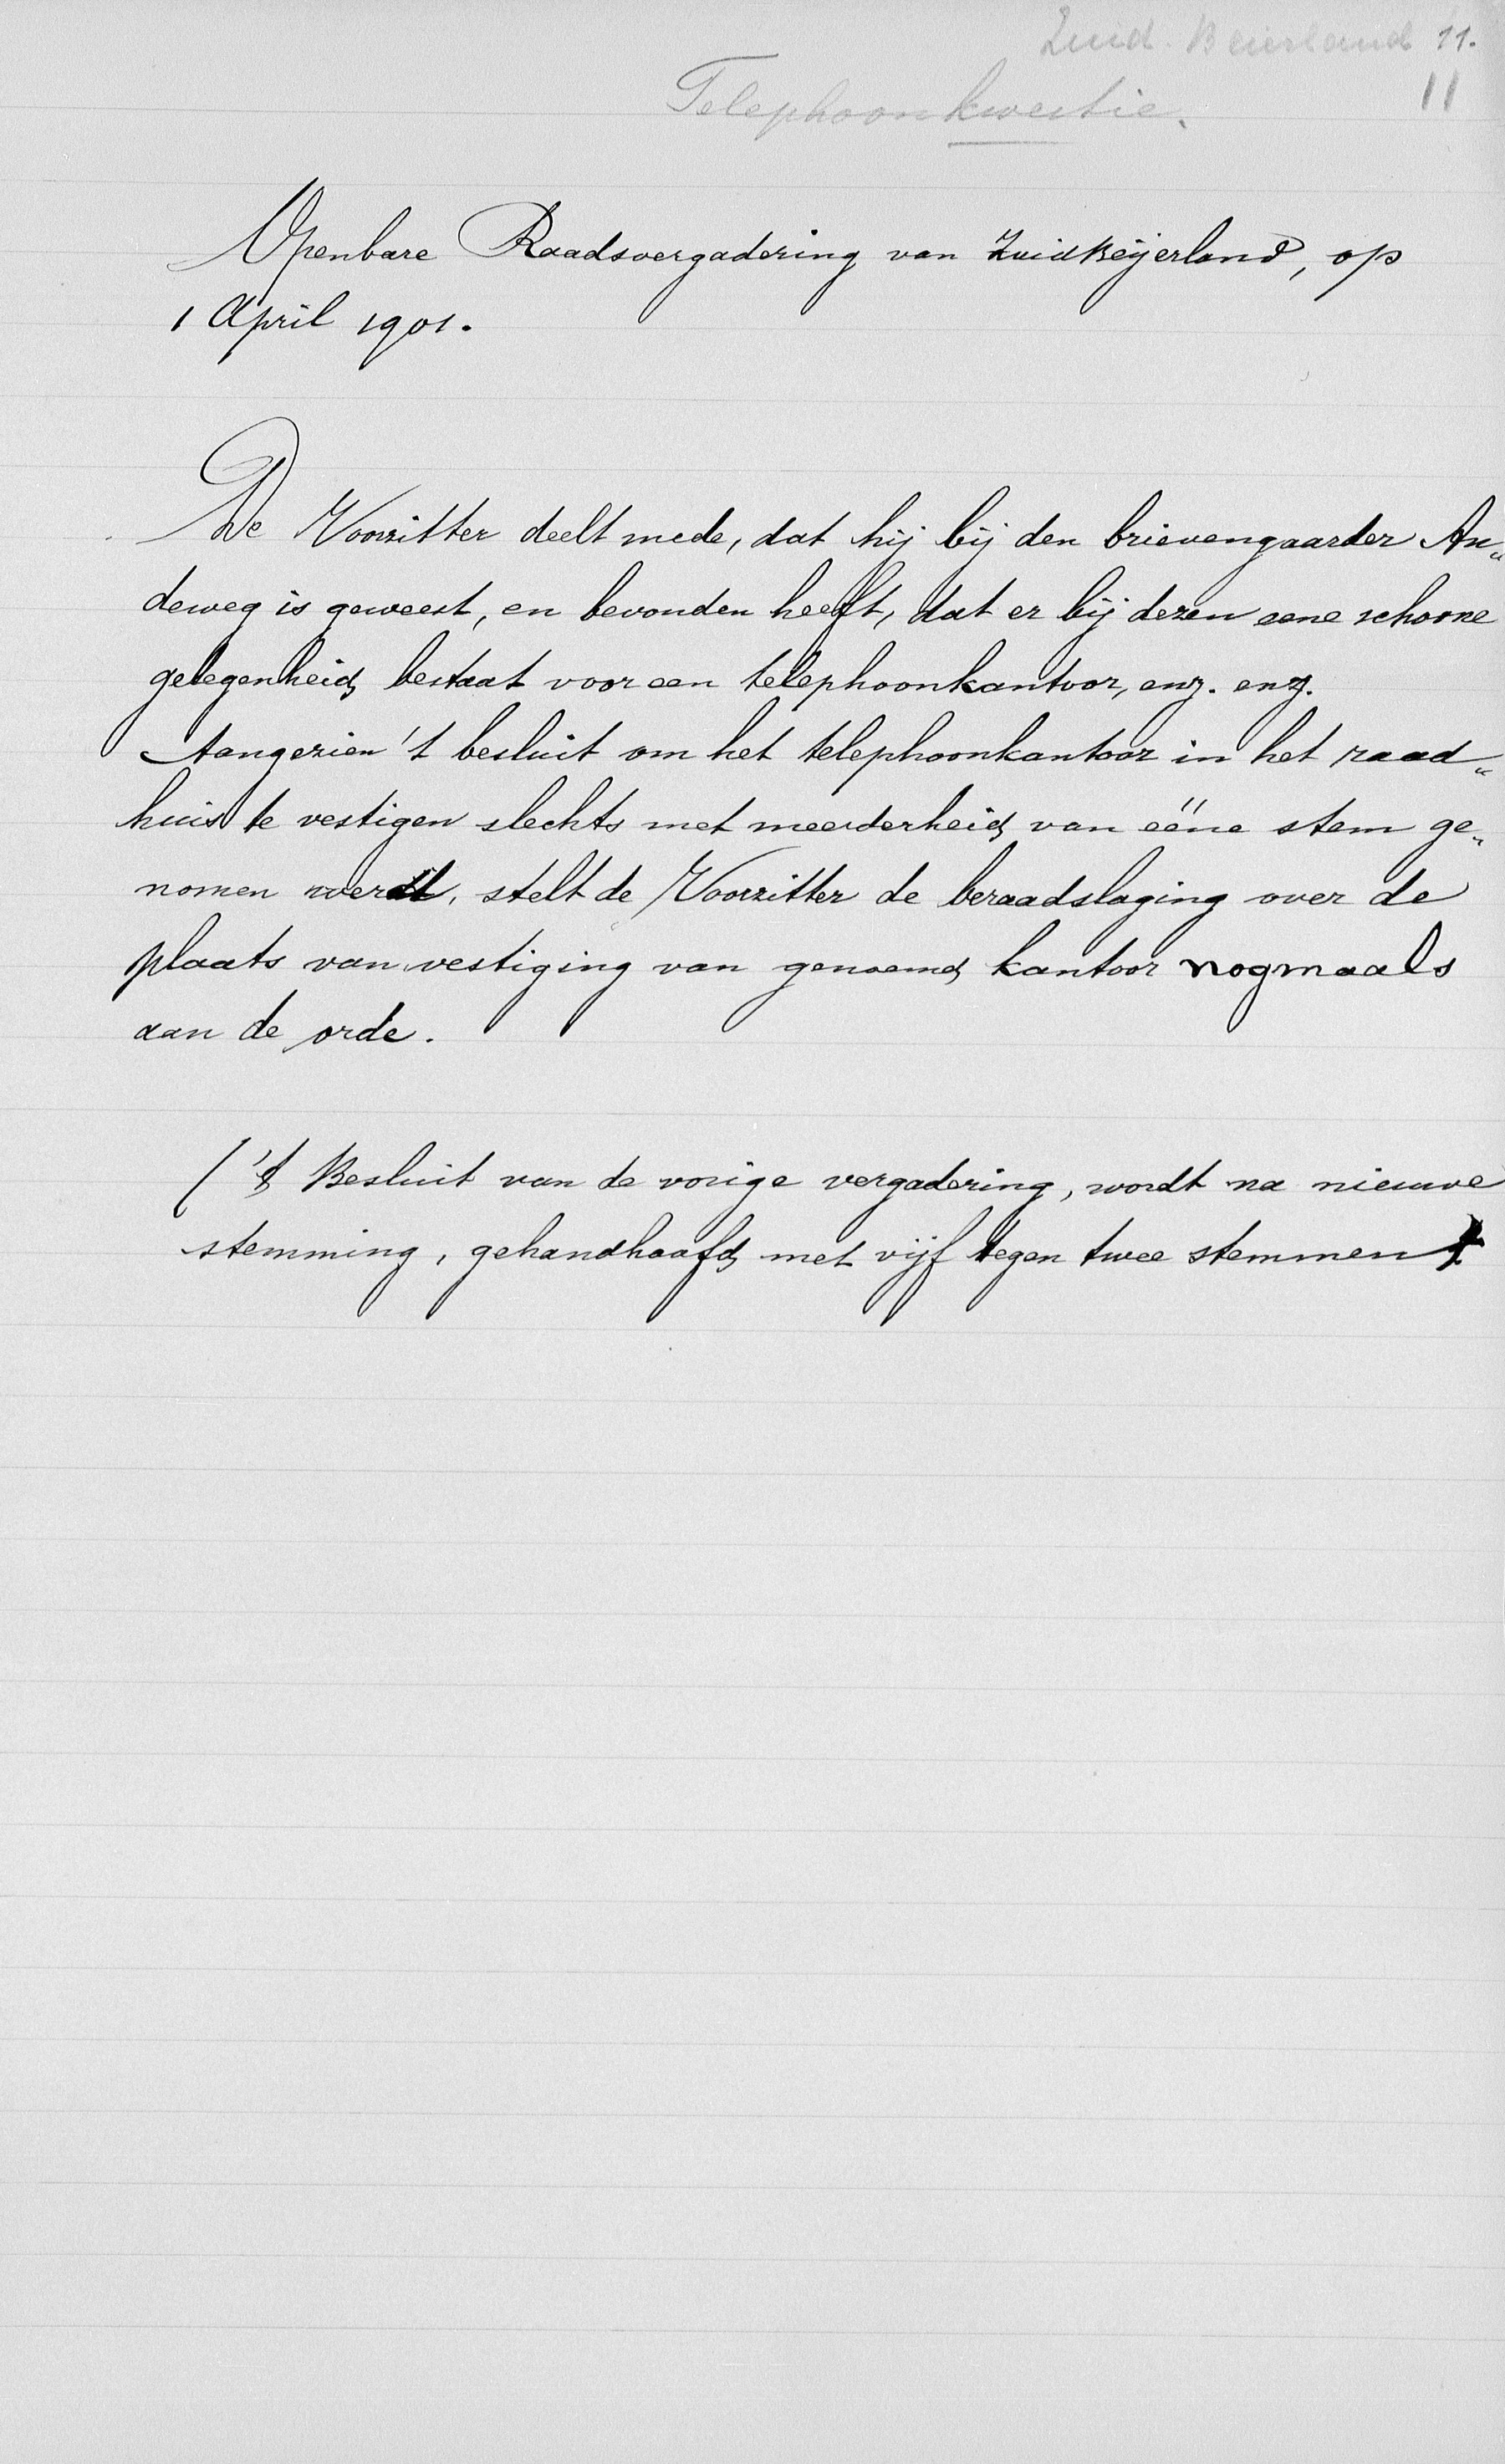 Zuid-Beierland 11.
11
Telephoonkwestie.
Openbare Raadsvergadering van ZuidBeijerland, op
1 April 1901.
De Voorzitter deelt mede, dat hij bij den brievengaarder An„
deweg is geweest, en bevonden heeft, dat er bij dezen eene schoone
gelegenheid bestaat voor een telephoonkantoor, enz. enz.
Aangezien 't besluit om het telephoonkantoor in het raad„
huis te vestigen slechts met meerderheid van ééne stem ge„
nomen werd, stelt de Voorzitter de beraadslaging over de
plaats van vestiging van genoemd kantoor nogmaals
aan de orde.
('t Besluit van de vorige vergadering, wordt na nieuwe
stemming, gehandhaafd met vijf tegen twee stemmen).